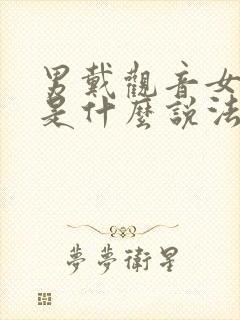 男戴觀音女
是什麼說法
夢夢衛星